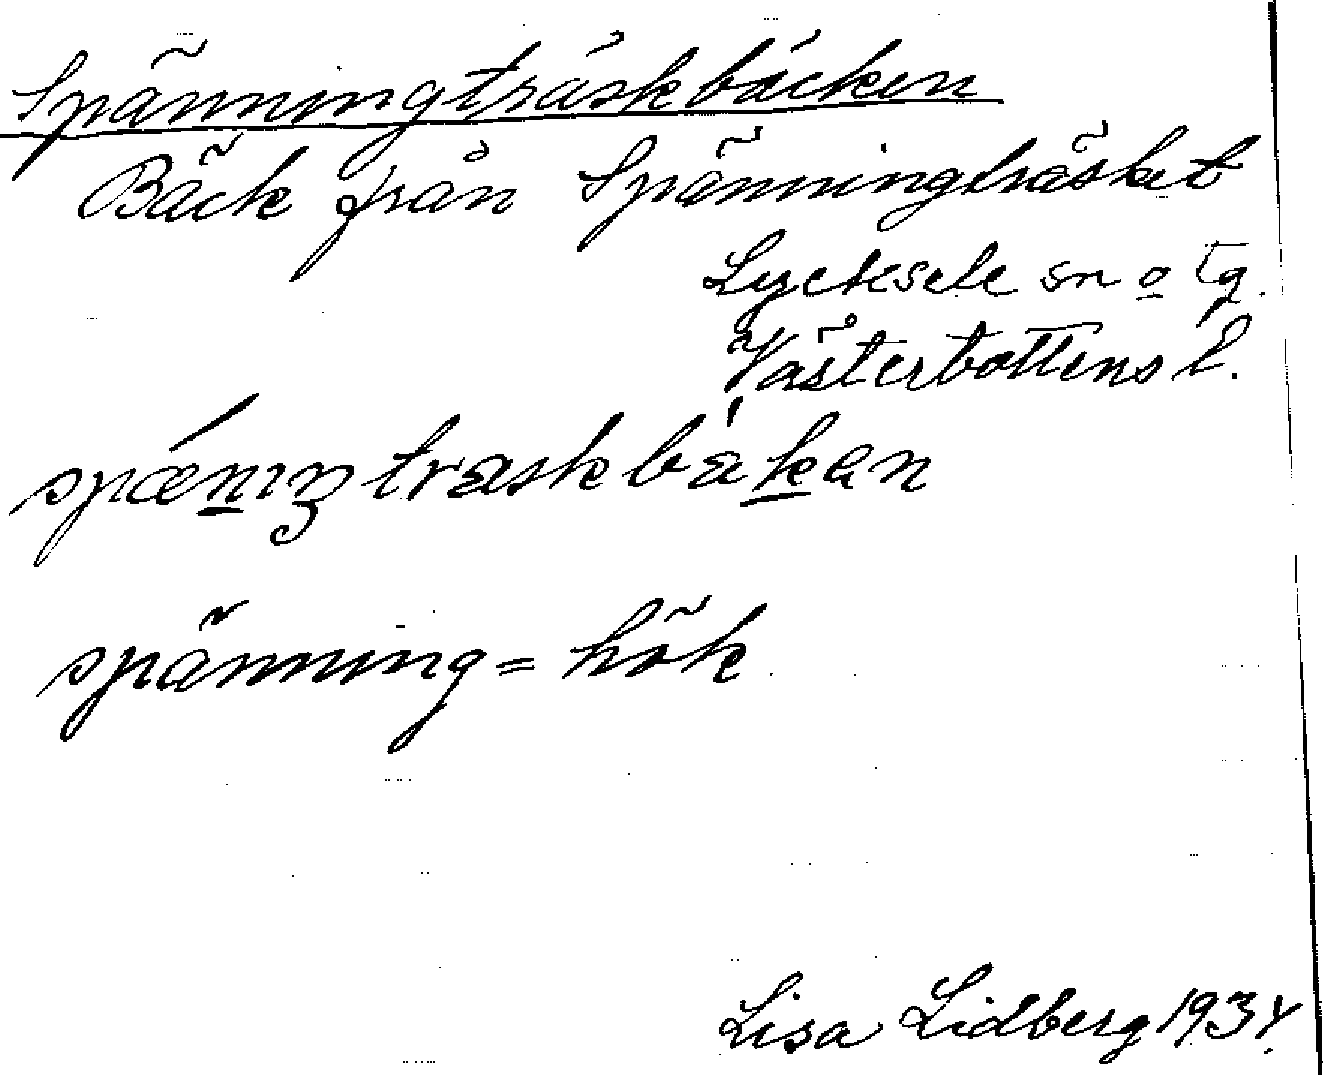 Spänningträskbäcken
Bäck från Spänningträsket
Lycksele sn o tg.
Västerbottens l.
spæniŋtraskbäkan
spänning = hök
Lisa Lidberg